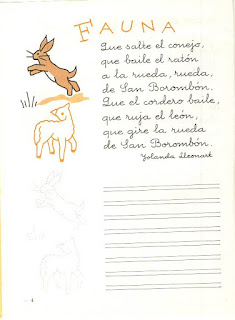 FAUNA
Que salte el conejo,
que baile el ratón
a la rueda, rueda,
de San Borombón.
Que el cordero baile,
que ruja el león,
que gire la rueda
de San Borombón.
Yolanda Lleonart
4